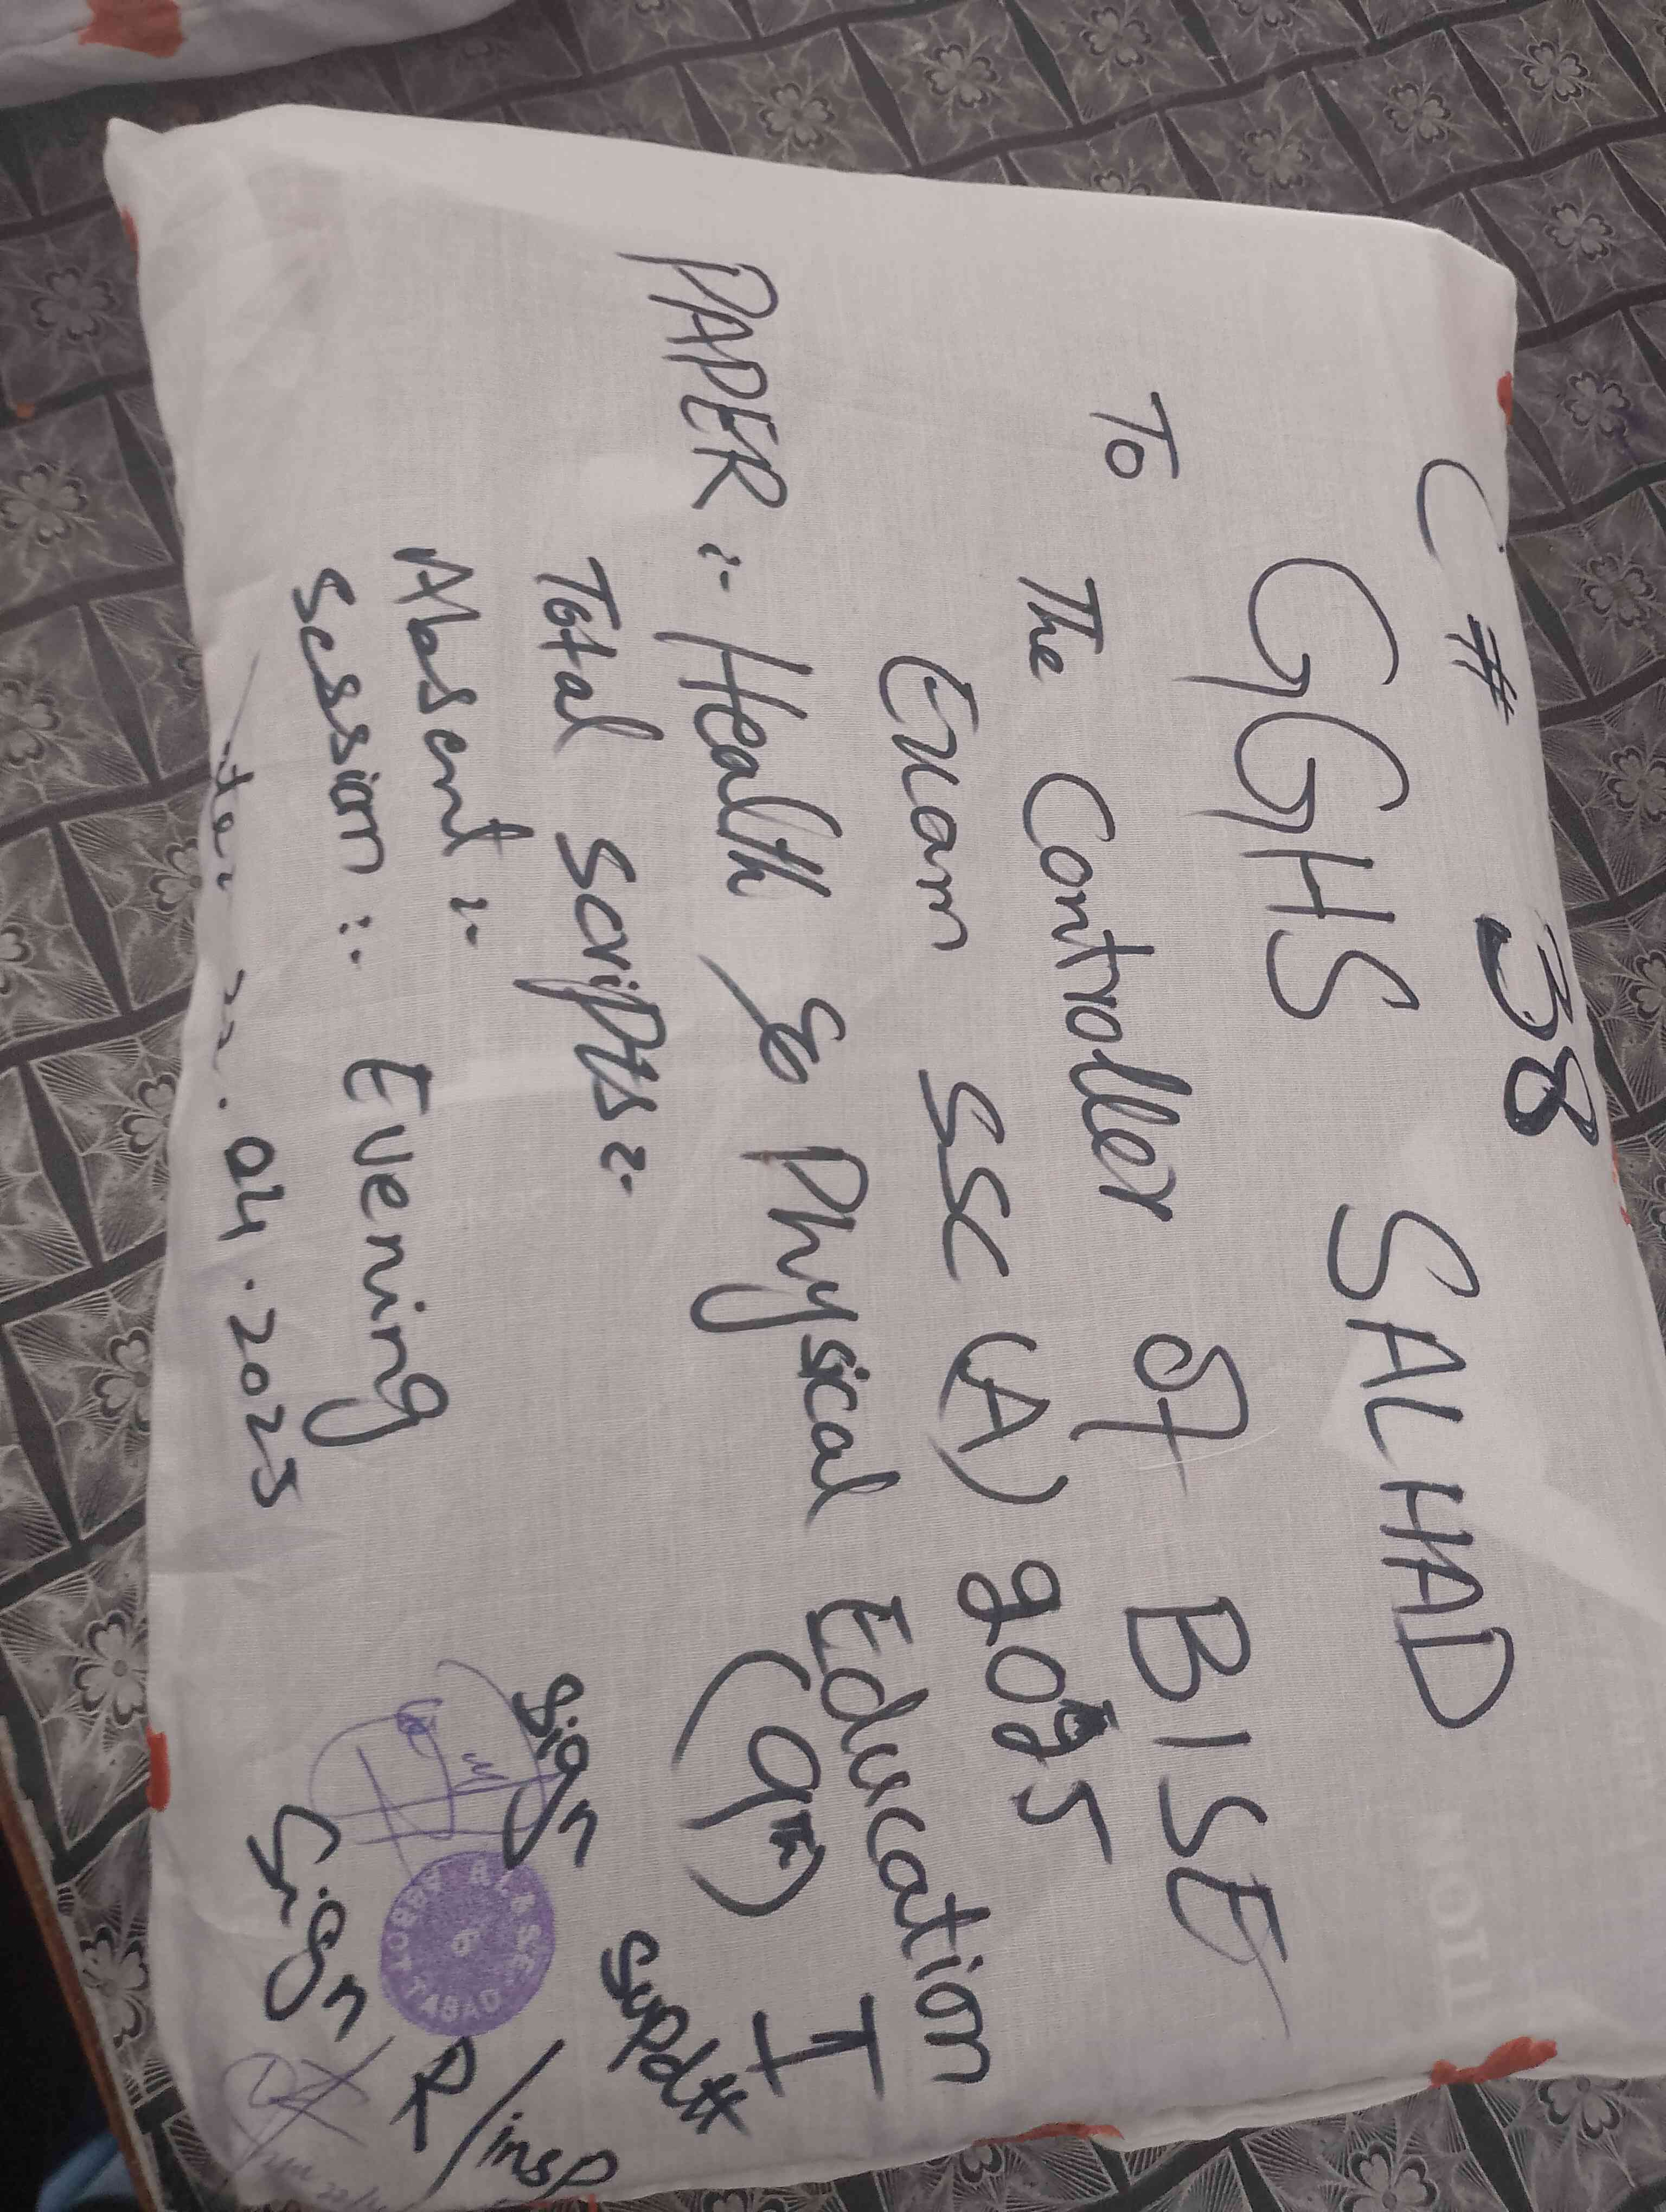 C # 38
GGHS SALHAD
To
The Controller of BISE
Exam SSC (A) 2025
PAPER :- Health & Physical Education I
(9th)
Total Scripts :-
Absent :-
Session :- Evening
22.04.2025
Sign Supdtt
B.I.&S.E. ABBOTTABAD
6
Sign R/insp